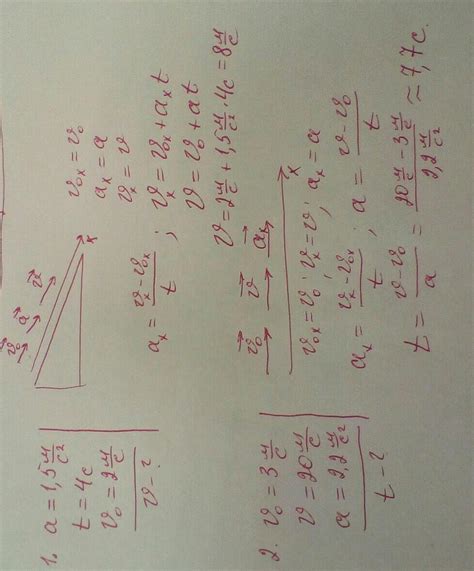 1. a = 1,5 м/с²
t = 4с
v₀ = 2 м/с
v - ?
v⃗₀ a⃗ v⃗
x
v₀ₓ = v₀
aₓ = a
vₓ = v
aₓ = (vₓ - v₀ₓ)/t ; vₓ = v₀ₓ + aₓt
v = v₀ + at
v = 2 м/с + 1,5 м/с² · 4с = 8 м/с
2. v₀ = 3 м/с
v = 20 м/с
a = 2,2 м/с²
t - ?
v⃗₀ v⃗ a⃗ₓ
x
v₀ₓ = v₀ ; vₓ = v ; aₓ = a
aₓ = (vₓ - v₀ₓ)/t ; a = (v - v₀)/t
t = (v - v₀)/a = (20 м/с - 3 м/с)/(2,2 м/с²) ≈ 7,7 с.